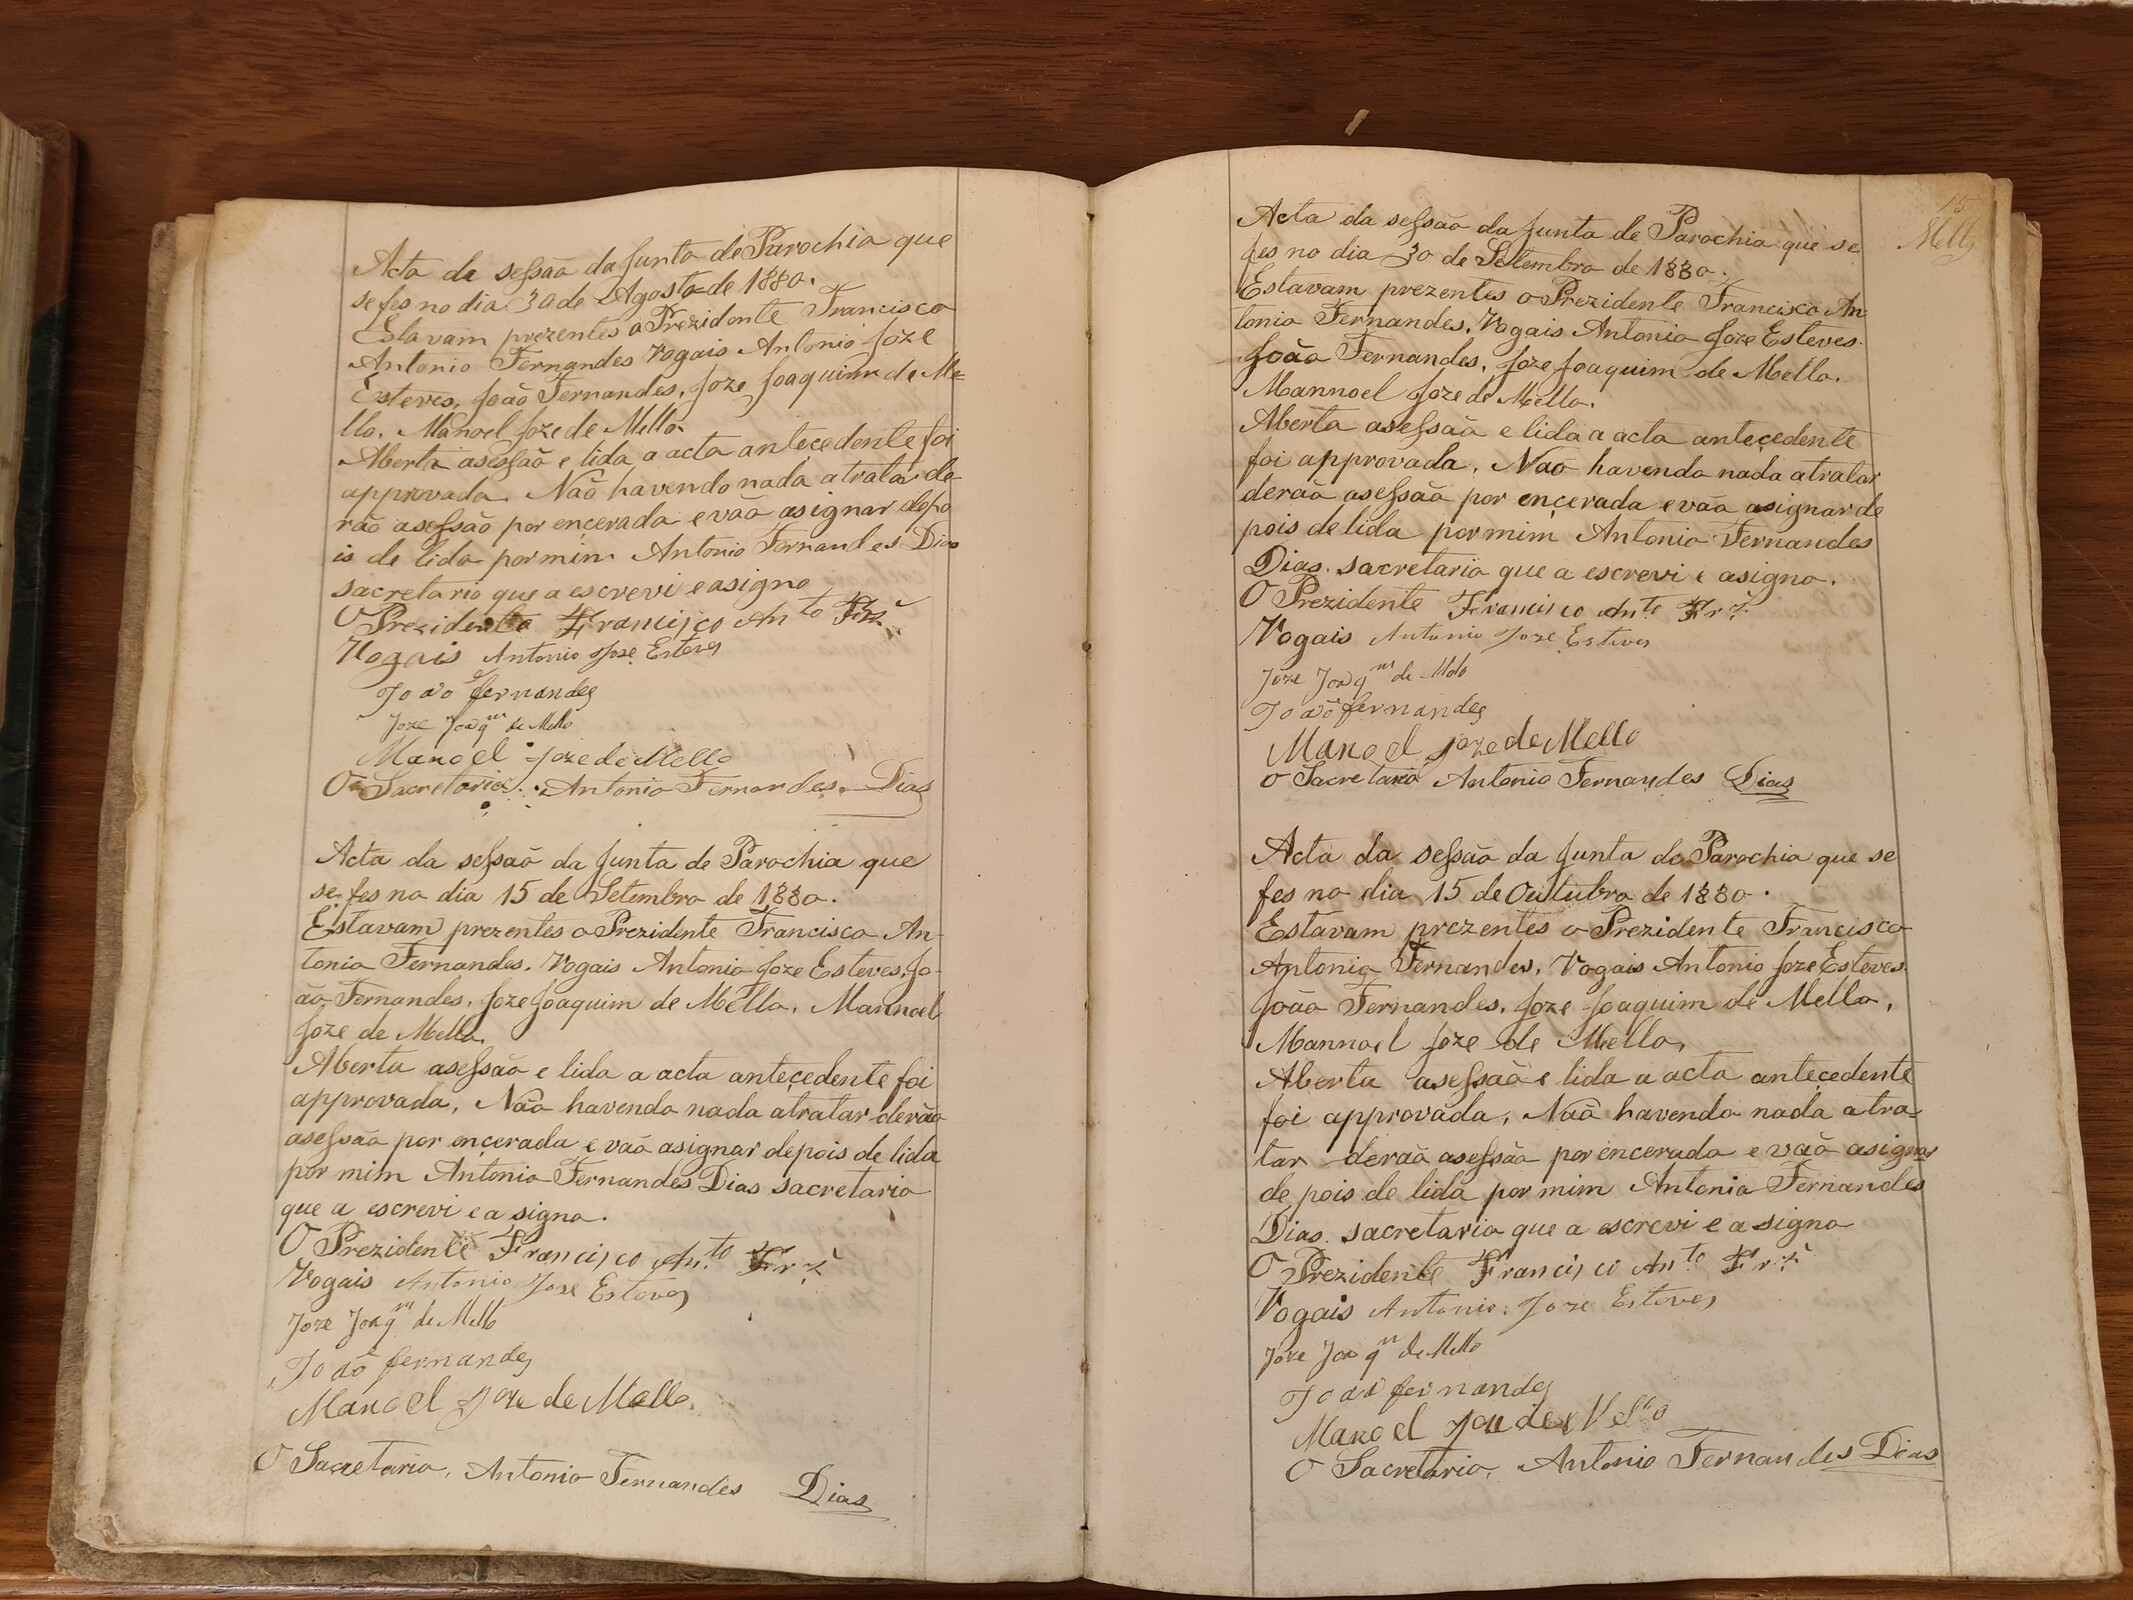 Acta da sessão da Junta de Parochia que
se fes no dia 30 de Agosto de 1880.
Estavam prezentes o Prezidente Francisco
Antonio Fernandes Vogais Antonio Joze
Esteves, João Fernandes, Joze Joaquim de Me=
llo. Manoel Joze de Mello.
Aberta asessão e lida a acta anteçedente foi
approvada. Não havendo nada a tratar de-
rão asessão por ençerada e vão asignar depo
is de lida por mim Antonio Fernandes Dias
sacretario que a escrevi e asigno
O Prezidente Francisco Anto Frz
Vogais Antonio Joze Esteves
João fernandes
Joze Joaqm de Mello
Manoel Joze de Mello
O Sacretario. Antonio Fernandes. Dias
Acta da sessão da Junta de Parochia que
se fes no dia 15 de Setembro de 1880.
Estavam prezentes o Prezidente Francisco An-
tonio Fernandes. Vogais Antonio Joze Esteves, Jo-
ão Fernandes, Joze Joaquim de Mello, Mannoel
Joze de Mello.
Aberta asessão e lida a acta anteçedente foi
approvada, Não havendo nada atratar derão
asessão por ençerada e vão asignar depois de lida
por mim Antonio Fernandes Dias sacretario
que a escrevi e a signo.
O Prezidente Francisco Anto Frz
Vogais Antonio Joze Esteves
Joze Joaqm de Mello
João fernandes
Manoel Joze de Mello.
O Sacretario, Antonio Fernandes Dias
15
Mello
Acta da sessão da Junta de Parochia que se
fes no dia 30 de Setembro de 1880.
Estavam prezentes o Prezidente Francisco An
tonio Fernandes, Vogais Antonio Joze Esteves.
João Fernandes, Joze Joaquim de Mello.
Mannoel Joze de Mello.
Aberta asessão e lida a acta anteçedente
foi approvada, Não havendo nada atratar
derão asessão por ençerada e vão asignar de
pois de lida por mim Antonio Fernandes
Dias. sacretario que a escrevi e asigno.
O Prezidente Francisco Anto Frz
Vogais Antonio Joze Esteves
Joze Joaqm de Mello
João fernandes
Manoel Joze de Mello
O Sacretario Antonio Fernandes Dias
Acta da sessão da Junta de Parochia que se
fes no dia 15 de Outubro de 1880.
Estavam prezentes o Prezidente Francisco
Antonio Fernandes, Vogais Antonio Joze Esteves.
João Fernandes, Joze Joaquim de Mello,
Mannoel Joze de Mello,
Aberta asessão e lida a acta anteçedente
foi approvada, Não havendo nada atra
tar derão asessão por encerada e vão asignar
de pois de lida por mim Antonio Fernandes
Dias. sacretario que a escrevi e a signo
O Prezidente Francisco Anto Frz
Vogais Antonio Joze Esteves
Joze Joaqm de Mello
João fernandes
Manoel Joze de Mello
O Sacretario, Antonio Fernandes Dias